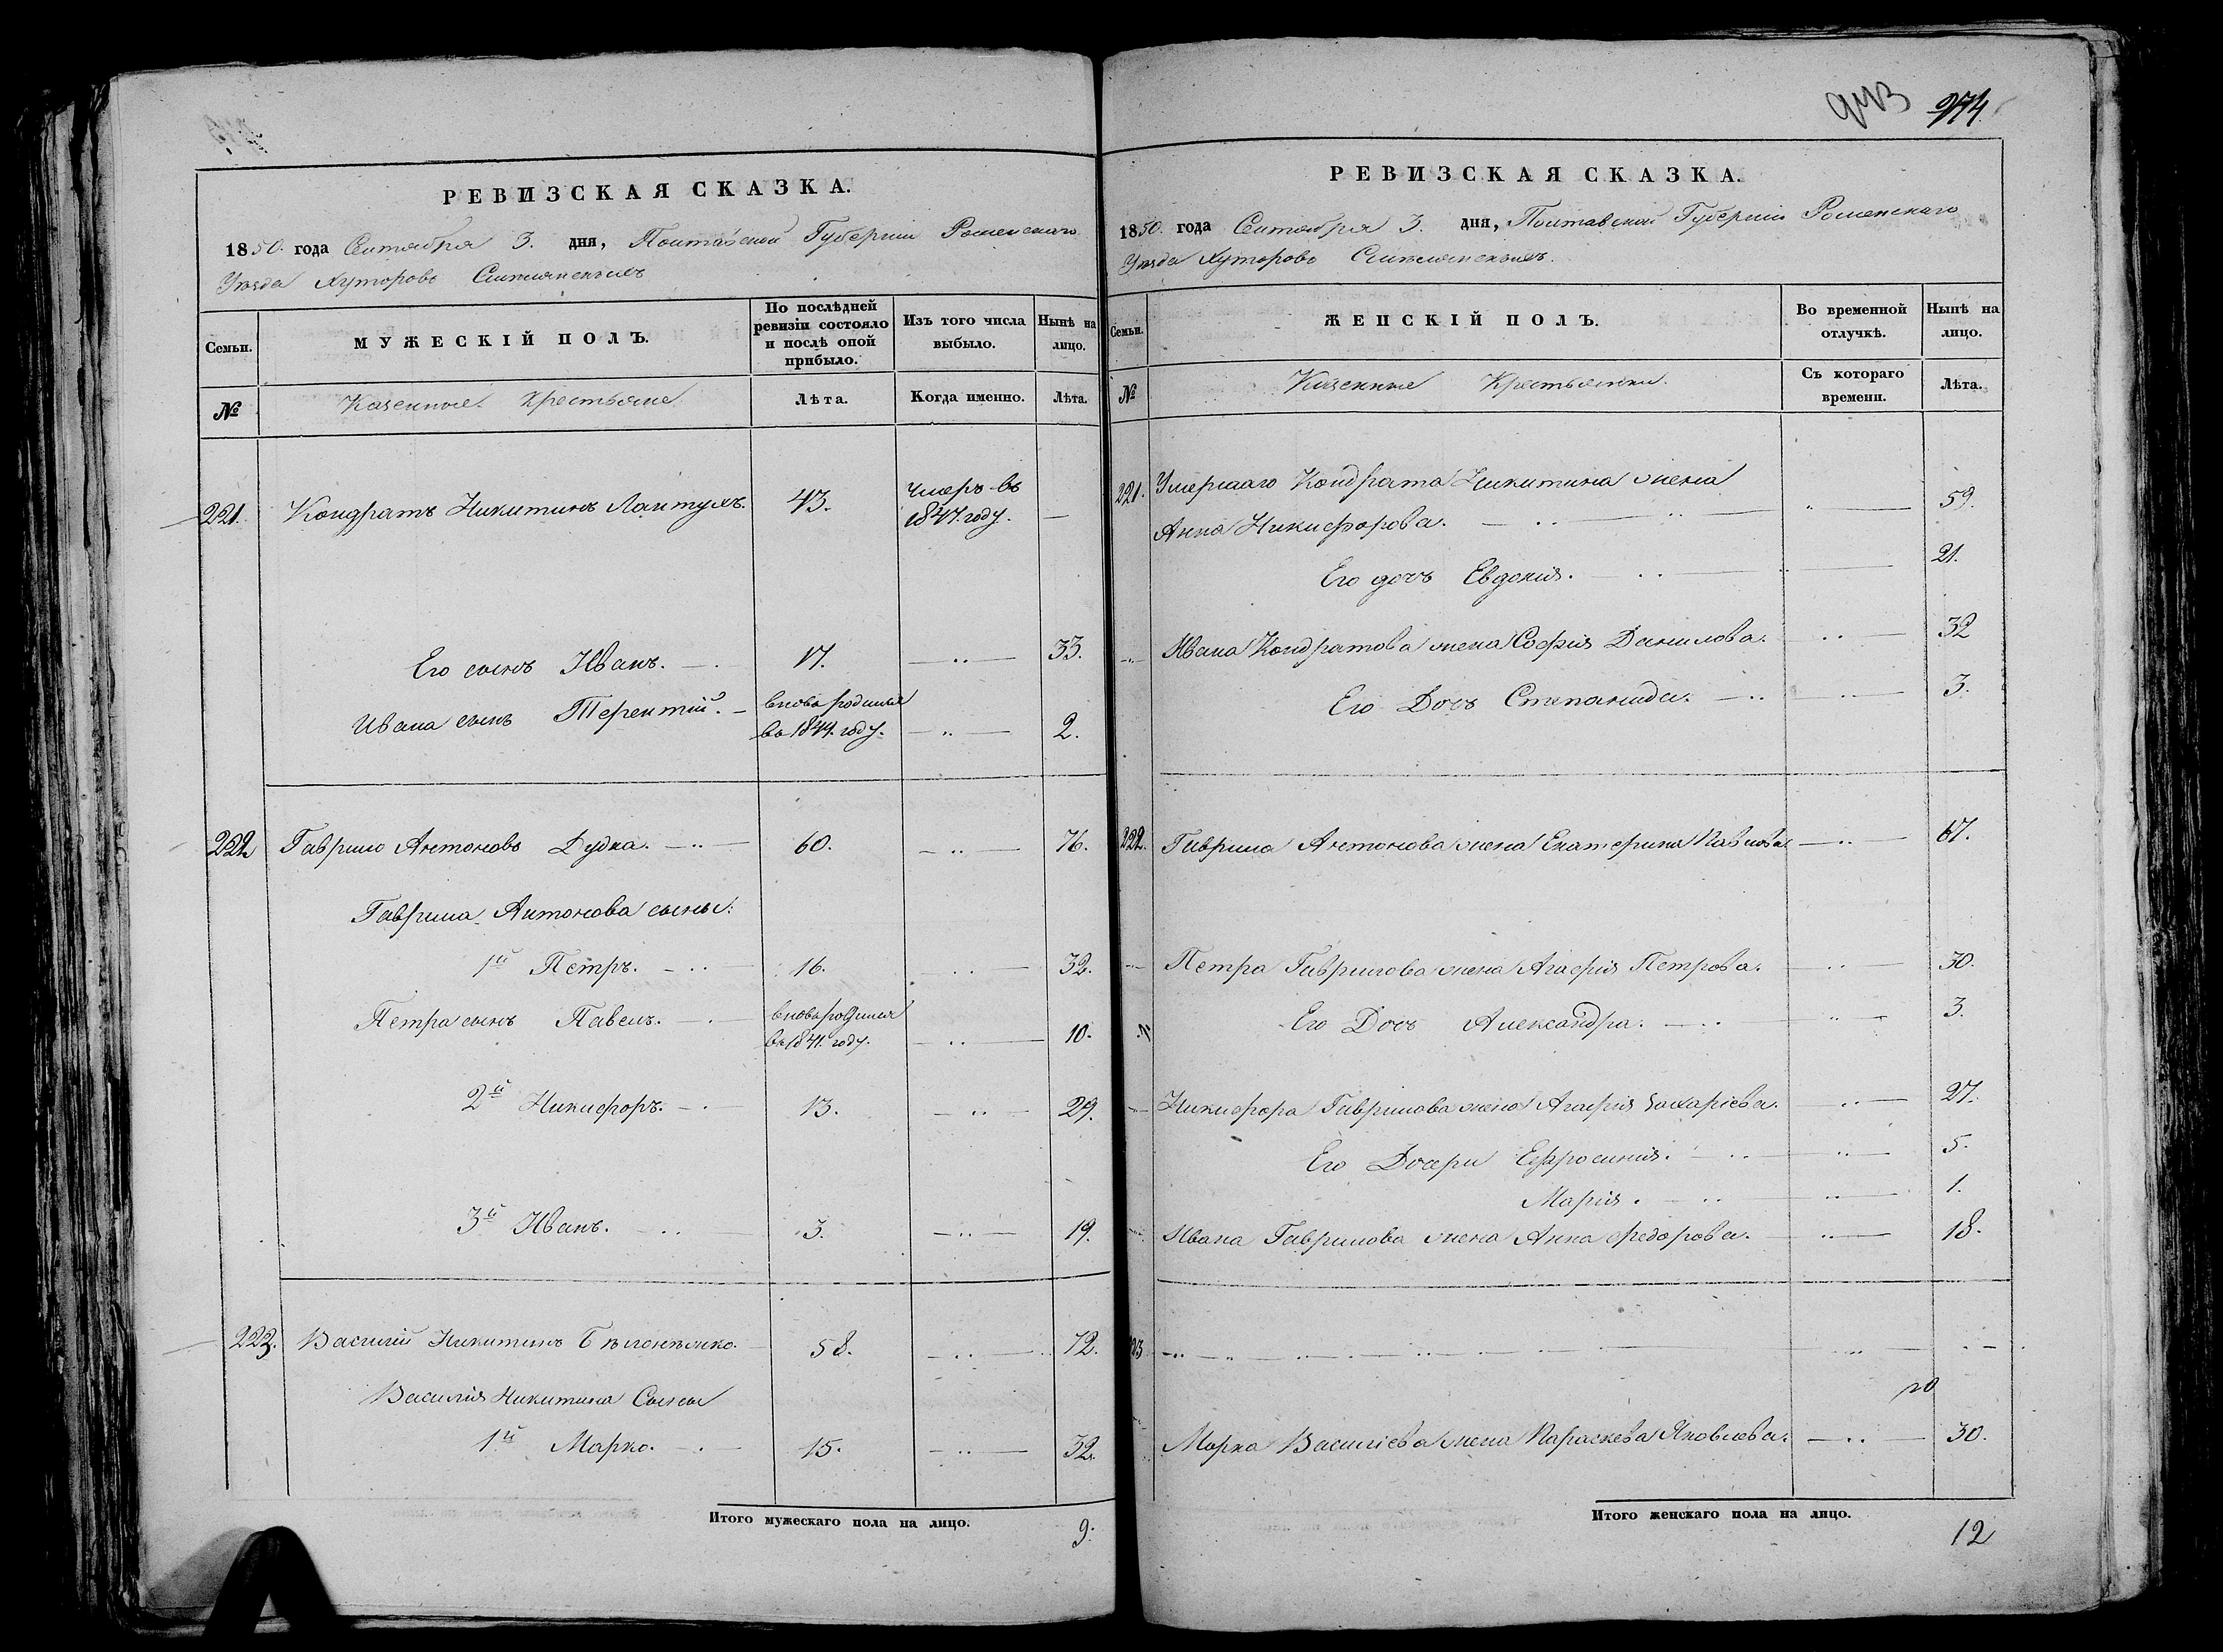 РЕВИЗСКАЯ СКАЗКА.
1850. года Сентября 3. дня, Полтавской Губерніи Роменскаго
Уѣзда Хуторовъ
Семьи.
МУЖЕСКІЙ ПОЛЪ.
По послѣдней ревизіи состояло и послѣ оной прибыло.
Изъ того числа выбыло.
Нынѣ на лицо.
№
Казенные Крестьяне
Лѣта.
Когда именно.
Лѣта.
221. Кондратъ Никитинъ 43. умеръ въ 1847. году. —
Его сынъ Иванъ. 17. 33.
Ивана сынъ Терентій. вновь родился въ 1844. году. 2.
222. Гаврило Антоновъ Дудка. 60. 76.
Гаврила Антонова сыны:
1й Петръ. 16. 32.
Петра сынъ Павелъ. вновь родился въ 1841. году. 10.
2й Никифоръ. 13. 29.
3й Иванъ. 3. 19.
223. Василій Никитинъ 58. 72.
Василія Никитина Сыны
1й Марко. 15. 32.
Итого мужескаго пола на лицо.
9.
943 274
РЕВИЗСКАЯ СКАЗКА.
1850. года Сентября 3. дня, Полтавской Губерніи Роменскаго
Уѣзда Хуторовъ
Семьи.
ЖЕНСКІЙ ПОЛЪ.
Во временной отлучкѣ.
Нынѣ на лицо.
№
Казенные Крестьянки.
Съ котораго времени.
Лѣта.
221. Умершаго Кондрата Никитина жена
Анна Никифорова. 59.
Его дочь Евдокія. 21.
Ивана Кондратова жена Софія Данилова. 32
Его Дочь Степанида. 3.
222. Гаврила Антонова жена Екатерина Павлова 67.
Петра Гаврилова жена Агафія Петрова. 30.
Его Дочь Александра. 3.
Никифора Гаврилова жена Агафія Захаріева. 27.
Его Дочери Ефросинія. 5.
Марія. 1.
Ивана Гаврилова жена Анна Федорова. 18.
223
Марка Василіева жена Параскева Яковлева. 30.
Итого женскаго пола на лицо.
12